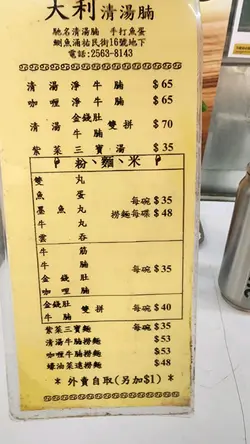 大利清湯腩
馳名清湯腩 手打魚蛋
鰂魚涌祐民街16號地下
電話:2563-8143
清湯淨牛腩 $65
咖喱淨牛腩 $65
清湯 金錢肚 牛腩 雙拼 $70
紫菜三寶湯 $35
粉、麵、米
雙丸
魚蛋
墨魚丸
牛丸
雲吞
每碗$35
撈麵每碟$48
牛筋
牛腩
金錢肚
咖喱腩
每碗$35
金錢肚 牛腩 雙拼 每碗$40
紫菜三寶麵 每碗$35
清湯牛腩撈麵 $53
咖喱牛腩撈麵 $53
蠔油菜遠撈麵 $48
* 外賣自取(另加$1) *